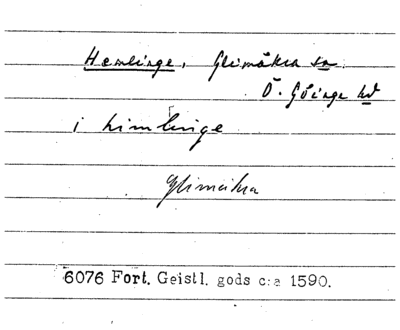 Hemlinge, Glimåkra sn
Ö. Göinge hd
i himlinge
Glimåkra
6076 Fort. Geistl. gods c:a 1590.